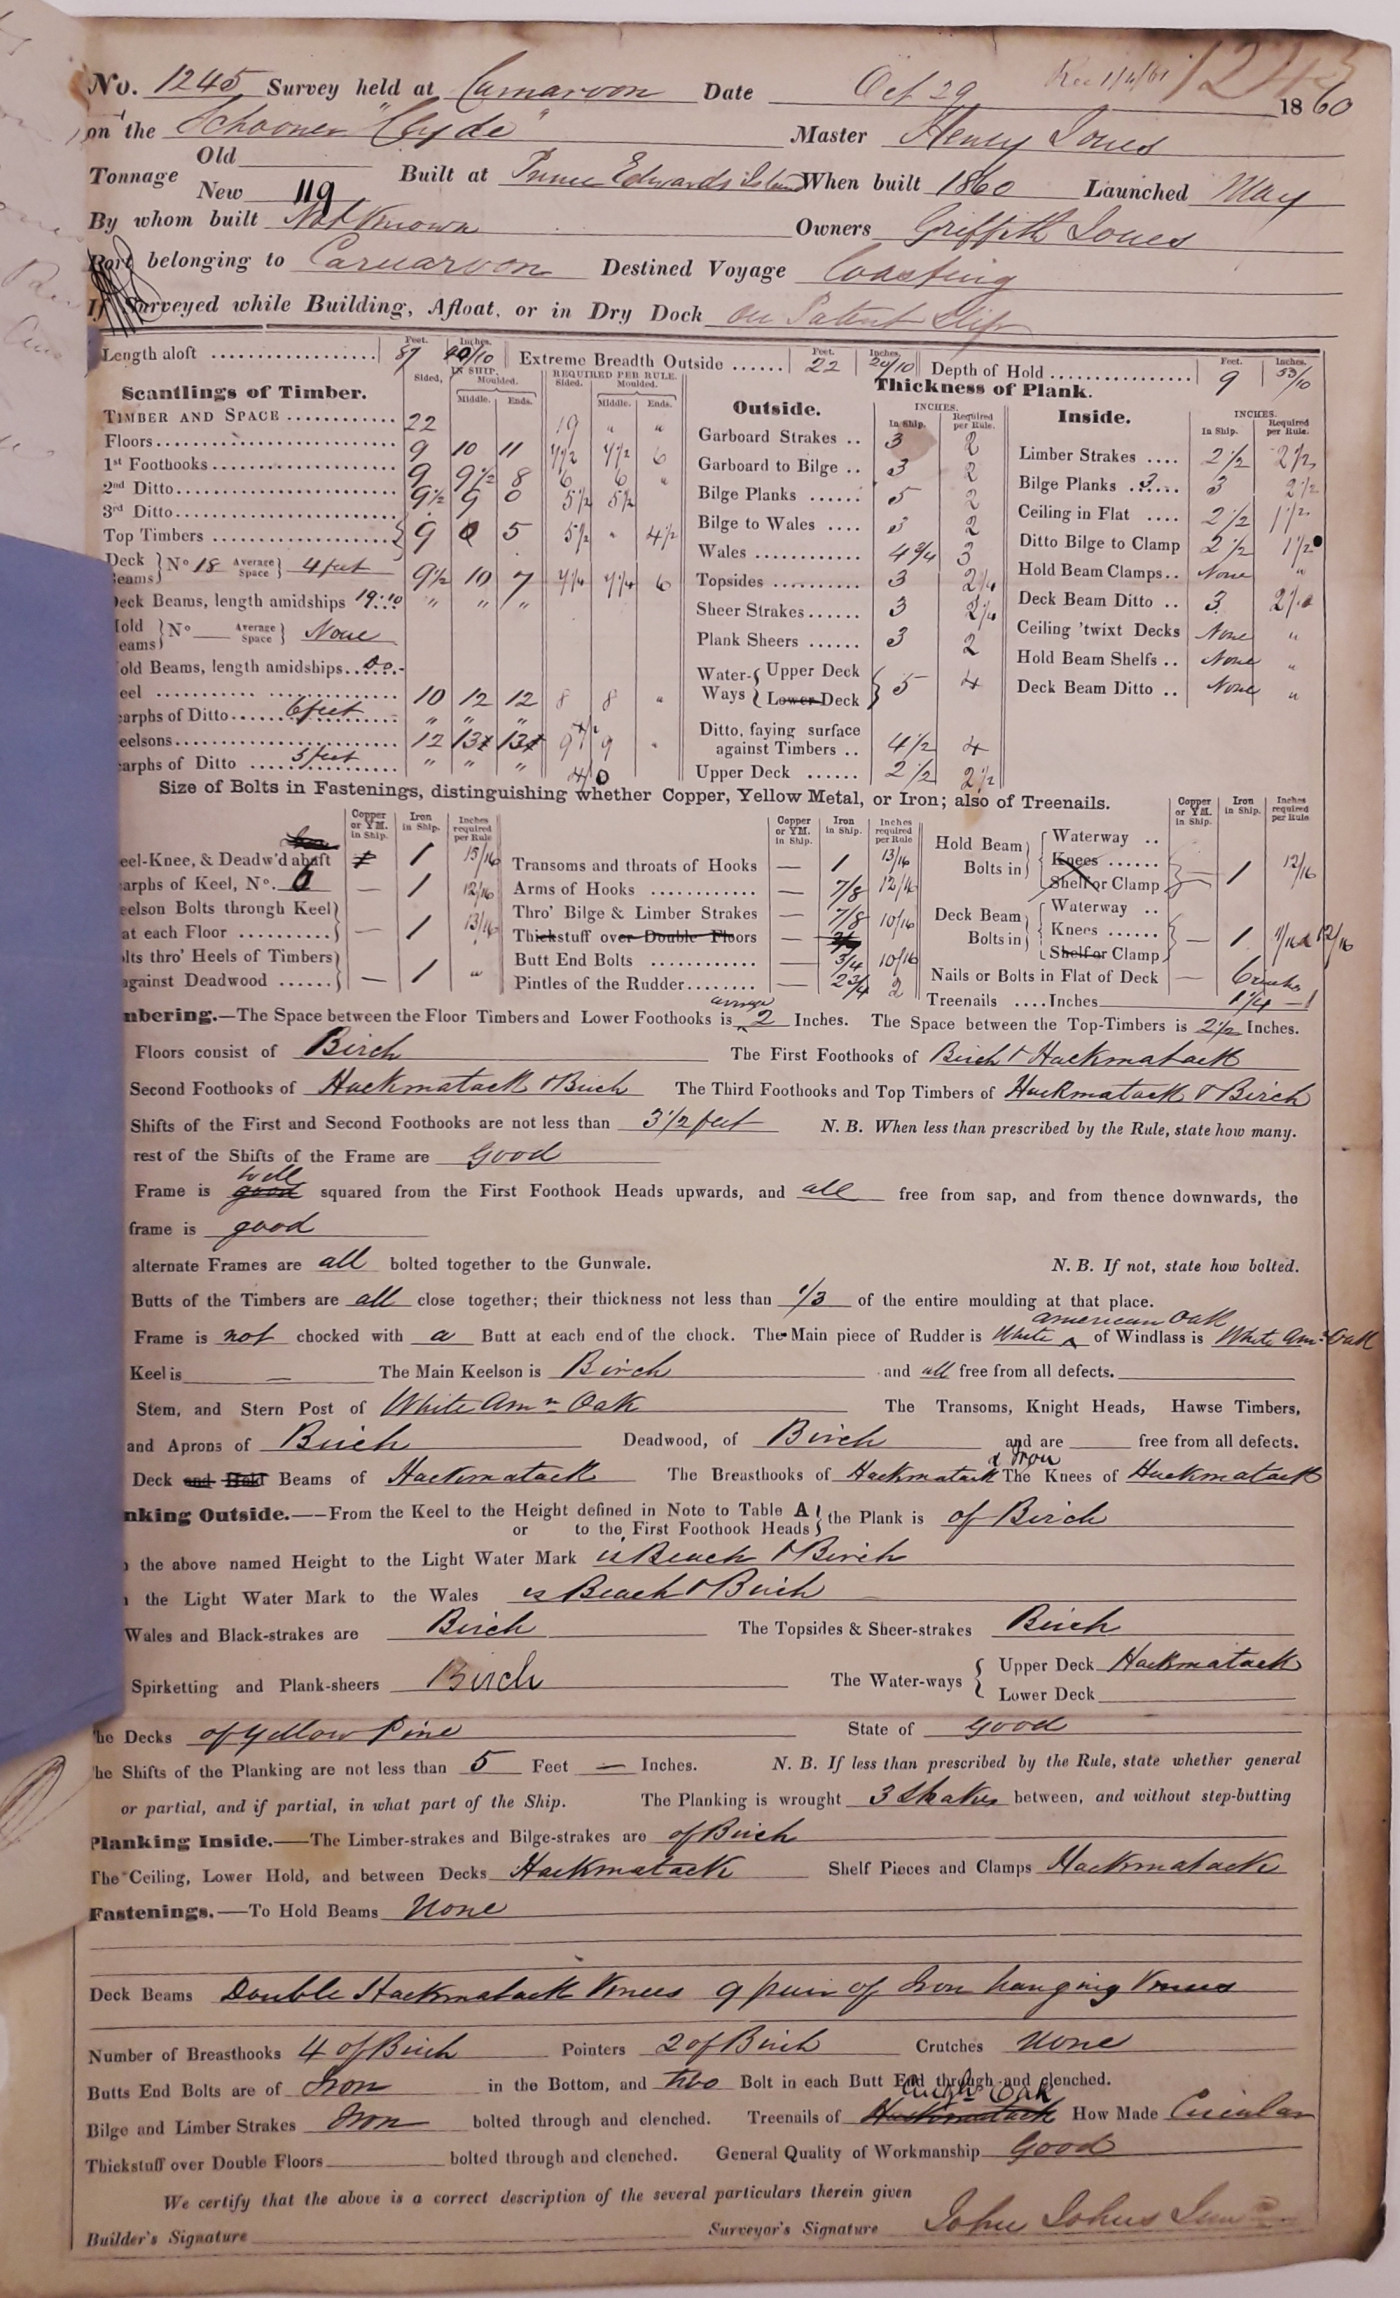 No. 1245 Survey held at Carnarvon Date Oct 29 1860
Rec 1/4/61 1245
on the Schooner "Clyde" Master Henry Jones
Tonnage Old
New 119 Built at Prince Edwards Island When built 1860 Launched May
By whom built Not Known Owners Griffith Jones
Port belonging to Carnarvon Destined Voyage Coasting
If Surveyed while Building, Afloat, or in Dry Dock on Patent Slip
Length aloft Feet. 87 Inches. /10 Extreme Breadth Outside Feet. 22 Inches. /10 Depth of Hold Feet. 9 Inches. 53/10
Scantlings of Timber. Sided, IN SHIP. Moulded. Middle. Ends. REQUIRED PER RULE. Sided. Moulded. Middle. Ends.
TIMBER AND SPACE 22 19 " "
Floors 9 10 11 7 1/2 7 1/2 6
1st Foothooks 9 9 1/2 8 6 6 "
2nd Ditto 9 1/2 9 0 5 1/2 5 1/2
3rd Ditto
Top Timbers 9 5 5 1/2 " 4 1/2
Deck Beams No 18 Average Space 4 feet 9 1/2 10 7 7 1/4 7 1/4 6
Deck Beams, length amidships 19..10 " " "
Hold Beams No Average Space None
Hold Beams, length amidships
eel 10 12 12 8 8 "
carphs of Ditto 6 feet " " "
eelsons 12 13 13 9 9 "
carphs of Ditto 5 feet " " "
Thickness of Plank.
Outside. INCHES. In Ship. Required per Rule.
Garboard Strakes 3 2
Garboard to Bilge 3 2
Bilge Planks 5 2
Bilge to Wales 3 2
Wales 4 3/4 3
Topsides 3 2 1/4
Sheer Strakes 3 2 1/4
Plank Sheers 3 2
Water-Ways Upper Deck Lower Deck 5 4
Ditto, faying surface against Timbers 4 1/2 4
Upper Deck 2 1/2 2 1/2
Inside. INCHES. In Ship. Required per Rule.
Limber Strakes 2 1/2 2 1/2
Bilge Planks 3 3 2 1/2
Ceiling in Flat 2 1/2 1 1/2
Ditto Bilge to Clamp 2 1/2 1 1/2
Hold Beam Clamps None "
Deck Beam Ditto 3 2 1/2
Ceiling 'twixt Decks None "
Hold Beam Shelfs None "
Deck Beam Ditto None "
Size of Bolts in Fastenings, distinguishing whether Copper, Yellow Metal, or Iron; also of Treenails.
Copper or Y.M. in Ship. Iron in Ship. Inches required per Rule
eel-Knee, & Deadw'd abaft 1 15/16
carphs of Keel, No. 6 — 1 12/16
eelson Bolts through Keel at each Floor — 1 13/16
olts thro' Heels of Timbers against Deadwood — 1 "
Copper or Y.M. in Ship. Iron in Ship. Inches required per Rule
Transoms and throats of Hooks — 1 13/16
Arms of Hooks — 7/8 12/16
Thro' Bilge & Limber Strakes — 7/8 10/16
Thickstuff over Double Floors —
Butt End Bolts — 3/4 10/16
Pintles of the Rudder — 2 3/4 2
Copper or Y.M. in Ship. Iron in Ship. Inches required per Rule
Hold Beam Bolts in Waterway Knees Shelf or Clamp — 1 12/16
Deck Beam Bolts in Waterway Knees Shelf or Clamp — 1 12/16
Nails or Bolts in Flat of Deck — 6 inches
Treenails Inches 1 1/4 — 1
mbering.—The Space between the Floor Timbers and Lower Foothooks is average 2 Inches. The Space between the Top-Timbers is 2 1/2 Inches.
Floors consist of Birch The First Foothooks of Birch & Hackmatack
Second Foothooks of Hackmatack & Birch The Third Foothooks and Top Timbers of Hackmatack & Birch
Shifts of the First and Second Foothooks are not less than 3 1/2 feet N. B. When less than prescribed by the Rule, state how many.
rest of the Shifts of the Frame are good
Frame is good well squared from the First Foothook Heads upwards, and all free from sap, and from thence downwards, the
frame is good
alternate Frames are all bolted together to the Gunwale. N. B. If not, state how bolted.
Butts of the Timbers are all close together; their thickness not less than 1/3 of the entire moulding at that place.
Frame is not chocked with a Butt at each end of the chock. The Main piece of Rudder is White american Oak of Windlass is White Amn Oak
Keel is — The Main Keelson is Birch and all free from all defects.
Stem, and Stern Post of White Amn Oak The Transoms, Knight Heads, Hawse Timbers,
and Aprons of Birch Deadwood, of Birch and are free from all defects.
Deck and Hold Beams of Hackmatack The Breasthooks of Hackmatack & Iron The Knees of Hackmatack
nking Outside.—From the Keel to the Height defined in Note to Table A or to the First Foothook Heads the Plank is of Birch
the above named Height to the Light Water Mark is Beach & Birch
the Light Water Mark to the Wales is Beach & Birch
Wales and Black-strakes are Birch The Topsides & Sheer-strakes Birch
Spirketting and Plank-sheers Birch The Water-ways Upper Deck Hackmatack
Lower Deck
he Decks of Yellow Pine State of good
he Shifts of the Planking are not less than 5 Feet — Inches. N. B. If less than prescribed by the Rule, state whether general
or partial, and if partial, in what part of the Ship. The Planking is wrought 3 Strakes between, and without step-butting
Planking Inside.—The Limber-strakes and Bilge-strakes are of Birch
The Ceiling, Lower Hold, and between Decks Hackmatack Shelf Pieces and Clamps Hackmatack
Fastenings.—To Hold Beams None
Deck Beams Double Hackmatack Knees 9 pair of Iron hanging Knees
Number of Breasthooks 4 of Birch Pointers 2 of Birch Crutches None
Butts End Bolts are of Iron in the Bottom, and two Bolt in each Butt End through and clenched.
Bilge and Limber Strakes Iron bolted through and clenched. Treenails of Hackmatack Oak How Made Circular
Thickstuff over Double Floors bolted through and clenched. General Quality of Workmanship Good
We certify that the above is a correct description of the several particulars therein given
Builder's Signature Surveyor's Signature John Johns